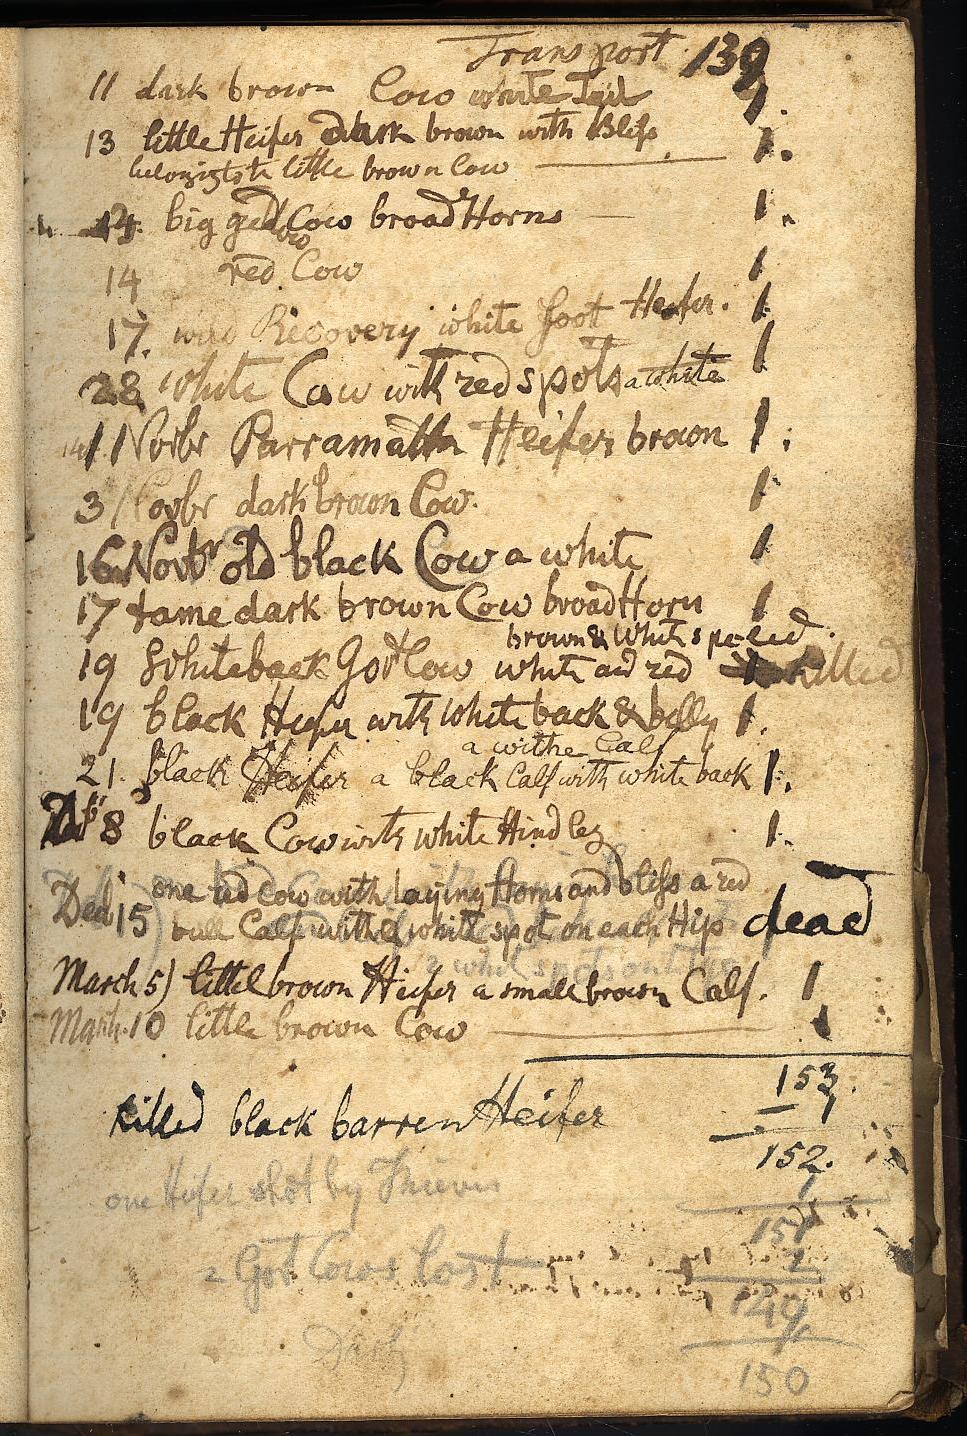 Transport 139
11 dark brown Cow white Tail 1.
13 little Heifer dark brown with Bless 1.
little brown Cow
14 big Cow broad Horns 1.
14 red Cow 1
17. Recovery white foot Heifer. 1
28 white Cow with red spots a white 1
1 Novbr Parramatta Heifer brown 1.
3 Novbr dark brown Cow. 1
16 Novbr old black Cow a white 1
17 tame dark brown Cow broad Horn 1
brown & white
19 Whiteback Govt Cow white and red 1 killed
19 black Heifer with white back & belly 1.
a withe Calf
21. black Heifer a black Calf with white back 1.
8 black Cow with white Hind leg 1.
one red Cow with laying Horns and bliss a red
Ded 15) bull Calf with white spot on each Hip dead
2 white spots on the
March 5) littel brown Heifer a small brown Calf. 1
March 10 little brown Cow 1
153.
killed black barren Heifer 1
152.
one Heifer shot by Thieves 1
151
2 Govt Cows lost 2
149
150